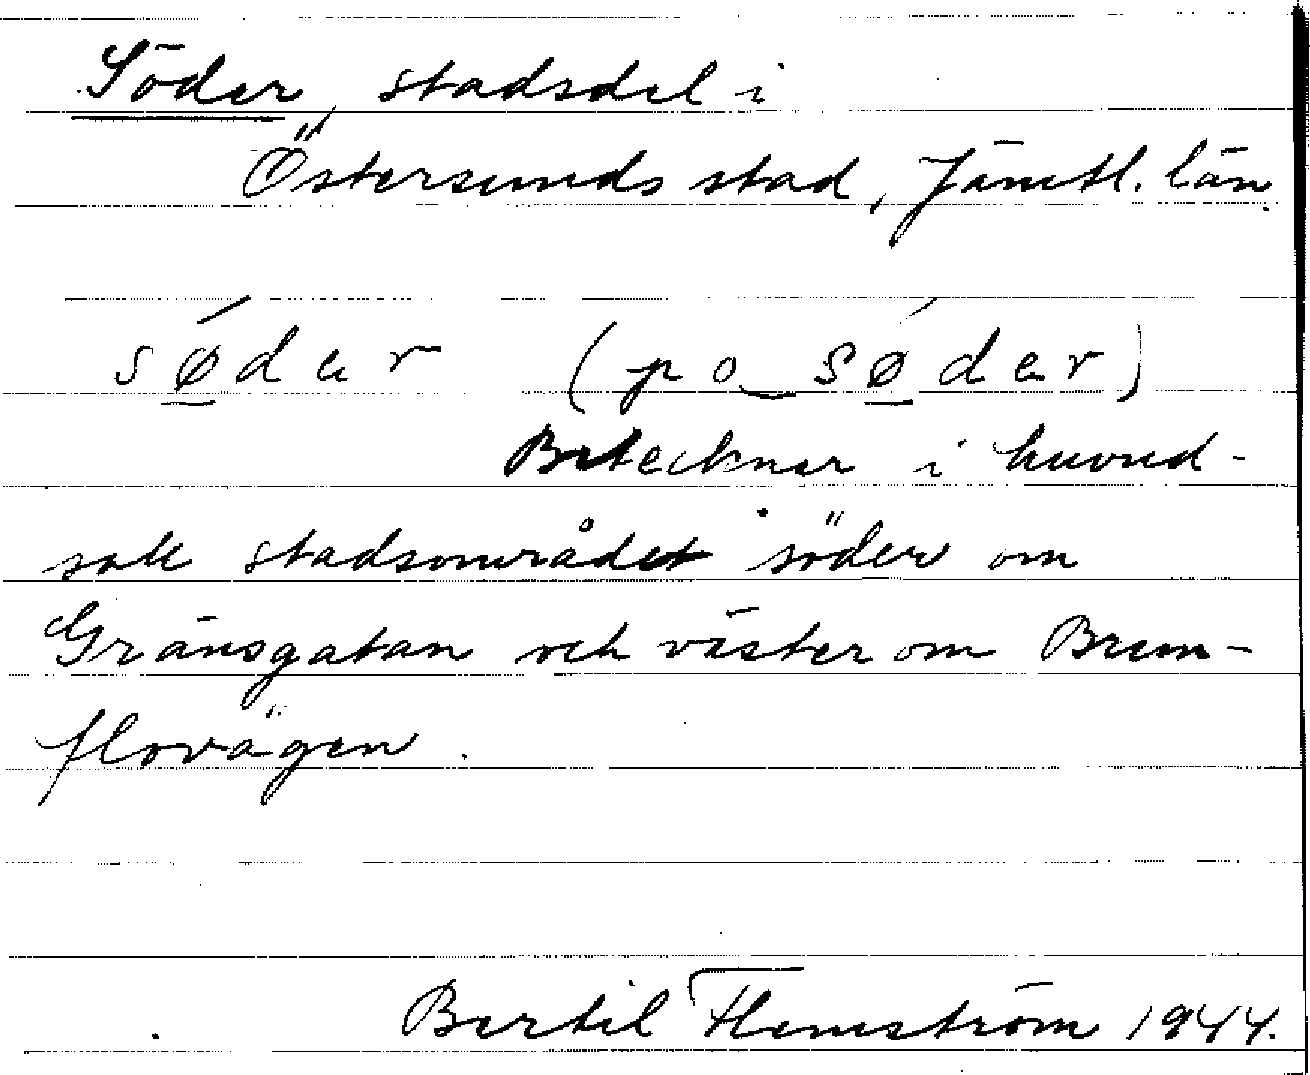 Söder, stadsdel i
Östersunds stad, Jämtl. län.
sǿ̲der (po‿sǿ̲der)
Betecknar i huvud-
sak stadsområdet söder om
Gränsgatan och väster om Brun-
flovägen.
Bertil Flemström 1944.